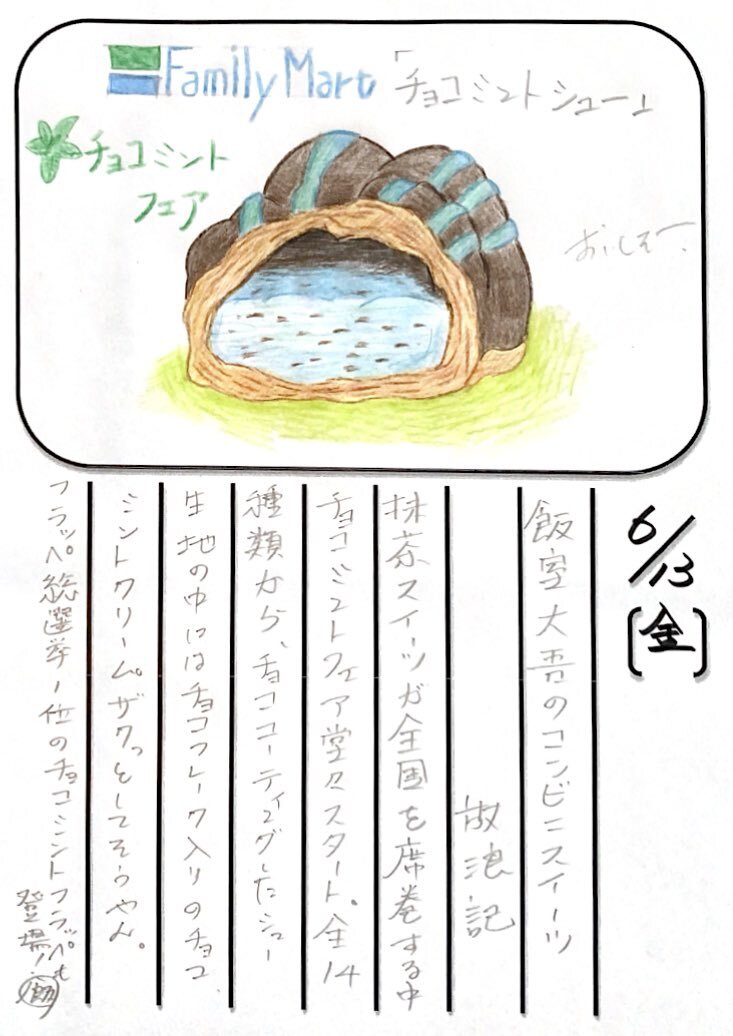 Family Mart 「チョコミントシュー」
チョコミント
フェア
おいしそー。
6/13
(金)
飯室大吾のコンビニスイーツ
放浪記
抹茶スイーツが全国を席巻する中
チョコミントフェア堂々スタート。全14
種類から、チョココーティングしたシュー
生地の中にはチョコフレーク入りのチョコ
ミントクリーム。ザクっとしてそうやん。
フラッペ総選挙1位のチョコミントフラッペも
登場!